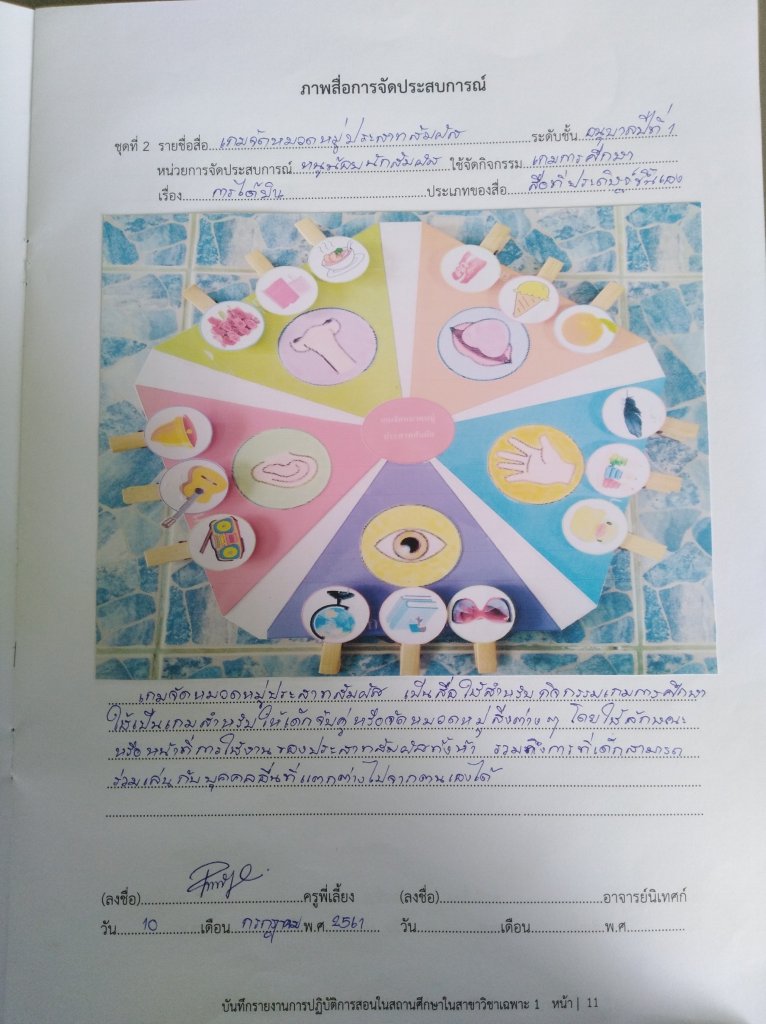 ภาพสื่อการจัดประสบการณ์
ชุดที่ 2 รายชื่อสื่อ เกมจัดหมวดหมู่ประสาทสัมผัส ระดับชั้น อนุบาลปีที่ 1
หน่วยการจัดประสบการณ์ หนูน้อยนักสัมผัส ใช้จัดกิจกรรม เกมการศึกษา
เรื่อง การได้ยิน ประเภทของสื่อ สื่อที่ประดิษฐ์ขึ้นเอง
เกมจัดหมวดหมู่
ประสาทสัมผัส
เกมจัดหมวดหมู่ประสาทสัมผัส เป็นสื่อใช้สำหรับกิจกรรมเกมการศึกษา
ใช้เป็นเกมสำหรับให้เด็กจับคู่หรือจัดหมวดหมู่สิ่งต่างๆ โดยใช้ลักษณะ
หรือหน้าที่การใช้งานของประสาทสัมผัสทั้งห้า รวมถึงการที่เด็กสามารถ
ร่วมเล่นกับบุคคลอื่นที่แตกต่างไปจากตนเองได้
(ลงชื่อ) ครูพี่เลี้ยง (ลงชื่อ) อาจารย์นิเทศก์
วัน 10 เดือน กรกฎาคม พ.ศ. 2561 วัน เดือน พ.ศ.
บันทึกรายงานการปฏิบัติการสอนในสถานศึกษาในสาขาวิชาเฉพาะ 1 หน้า | 11